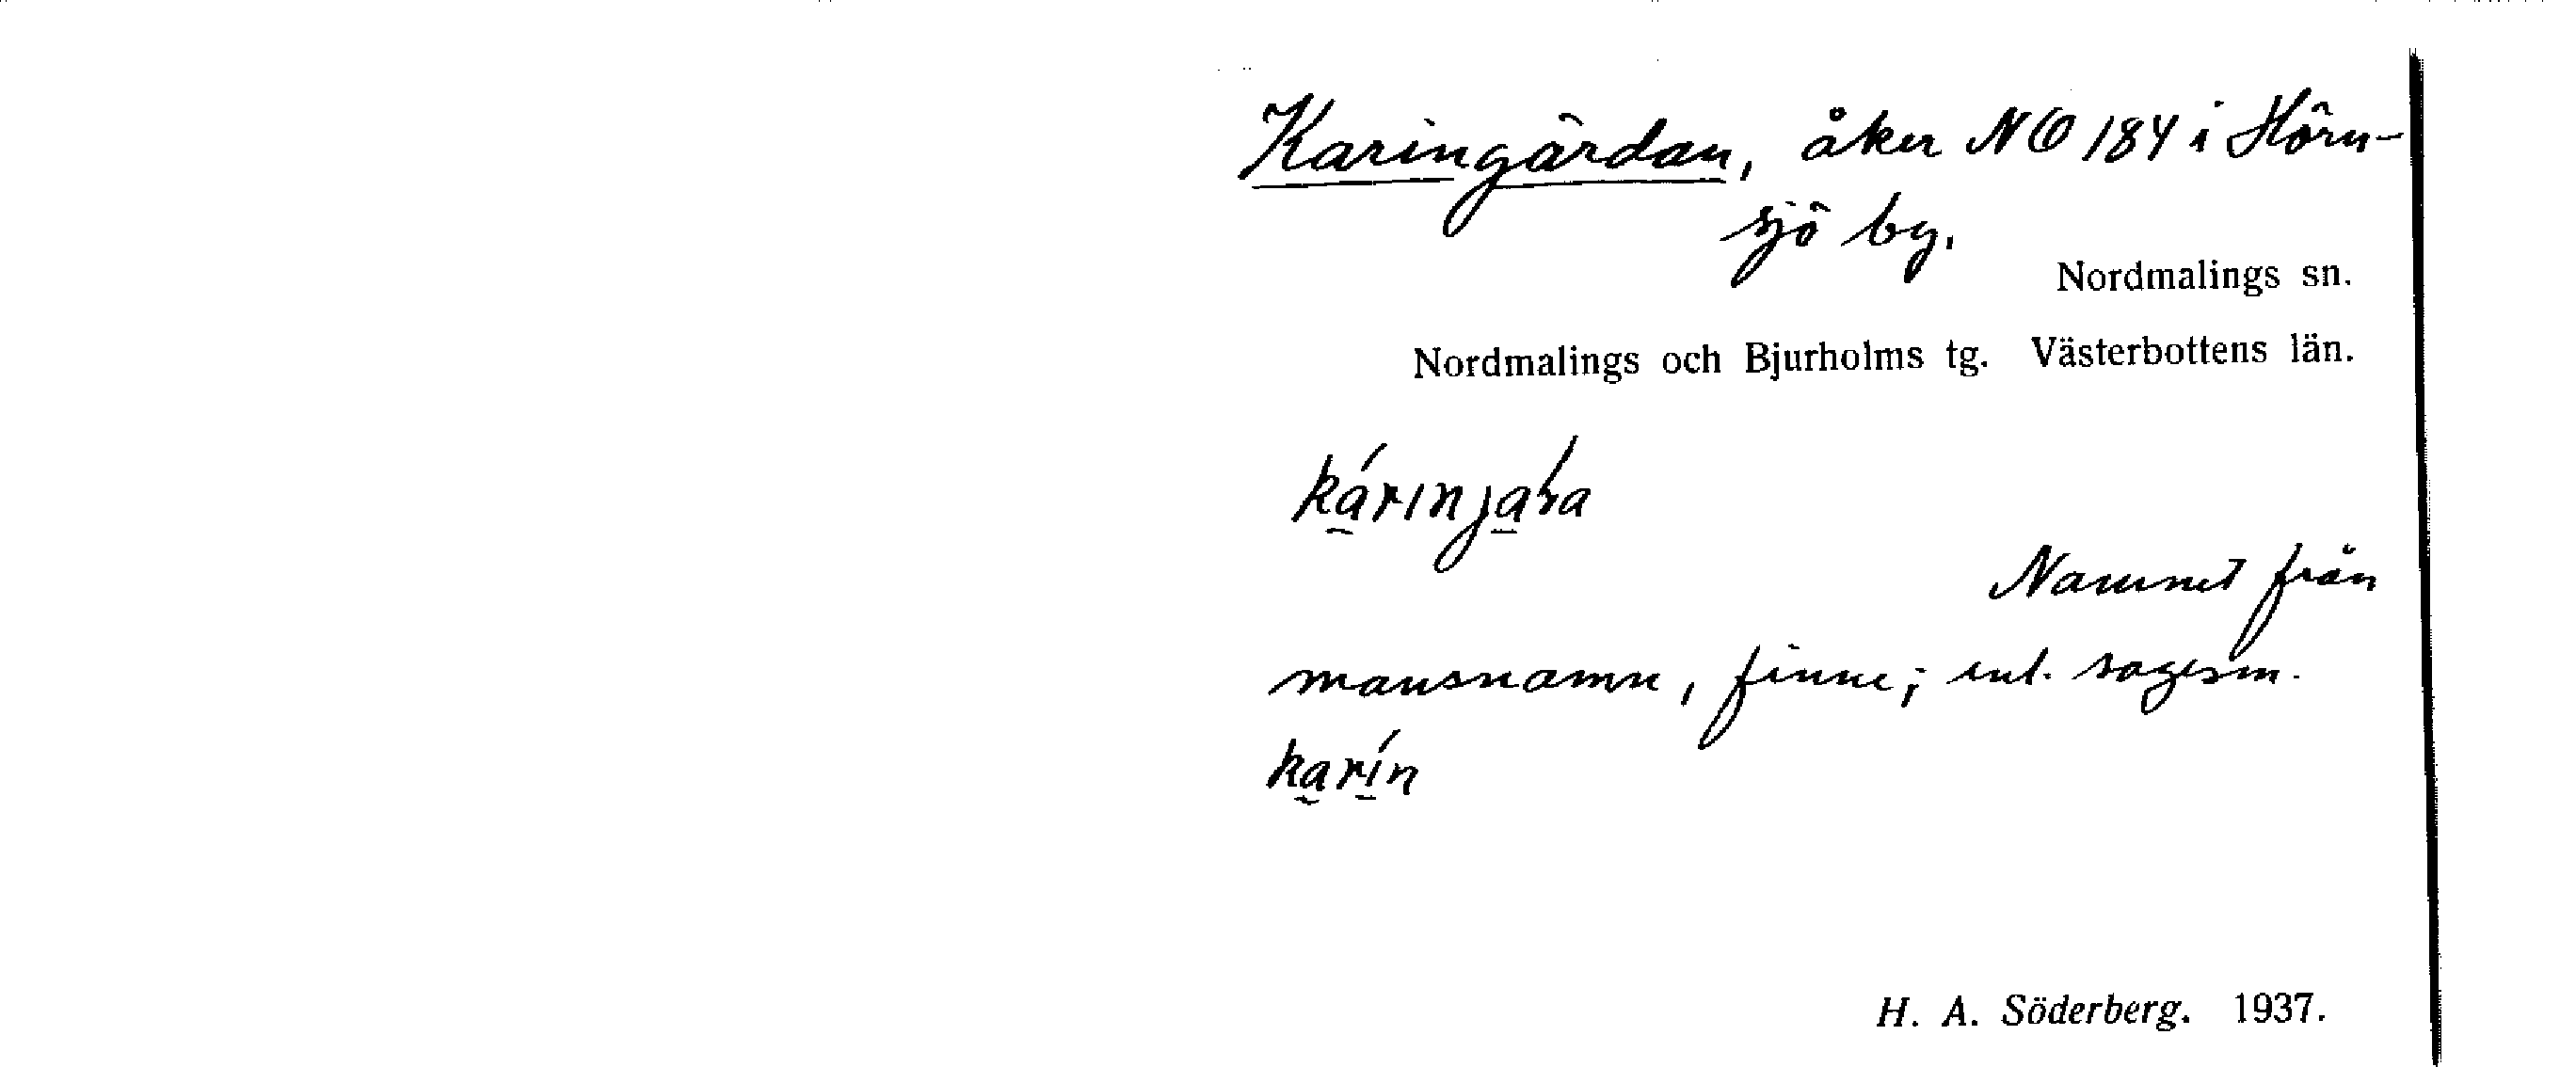 Karingärdan, åker NO 184 i Hörn-
sjö by.
Nordmalings sn.
Nordmalings och Bjurholms tg. Västerbottens län.
Namnet från
mansnamn, finne; enl. sagesm.
karín
H. A. Söderberg. 1937.